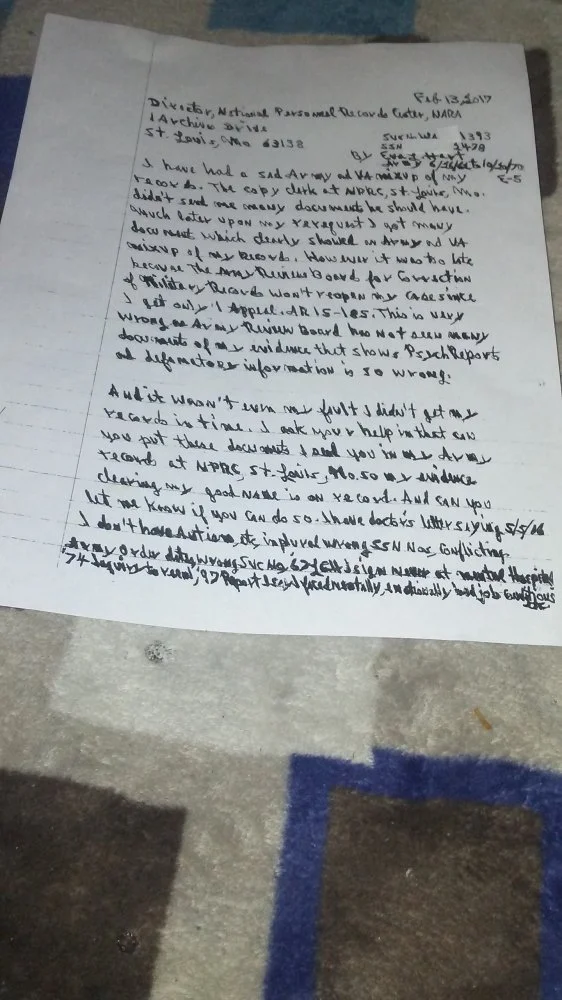 Feb 13, 2017
Director, National Personnel Records Center, NARA
1 Archive Drive
St. Louis, Mo 63138
1393
SSN 1478
By
Army
E-5
I have had a sad Army ad VA mixup of my
records. The copy clerk at NPRC, St. Louis, Mo.
didn't send me many documents he should have.
Much later upon my rerequest I got many
document which clearly showed an Army ad VA
mixup of my records. However it was too late
because The Army Review Board for Correction
of Military Records won't reopen my case since
I get only 1 Appeal. AR 15-185. This is very
wrong as Army Review Board has not seen many
documents of my evidence that shows Psych Reports
ad defamatory information is so wrong.
And it wasn't even my fault I didn't get my
records in time. I ask your help in that can
you put these documents I send you in my Army
records at NPRC, St. Louis, Mo. so my evidence
clearing my good name is on record. And can you
let me know if you can do so. I have doctor's letter saying 5/5/16
I don't have Autism, etc, wrong SSN Nos, Conflicting
Army Order dates, wrong Svc No, never at mental Hospital
74 '97 Report mentally, emotionally bad job conditions
etc